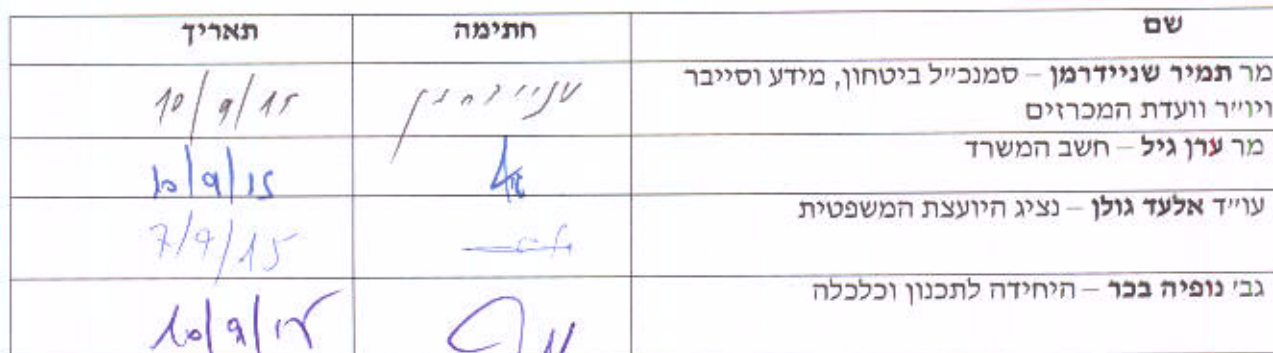 שם חתימה תאריך
מר תמיר שניידרמן – סמנכ״ל ביטחון, מידע וסייבר שניידרמן 10/9/15
ויו״ר וועדת המכרזים
מר ערן גיל – חשב המשרד 10/9/15
עו״ד אלעד גולן – נציג היועצת המשפטית 7/9/15
גב׳ נופיה בכר – היחידה לתכנון וכלכלה 10/9/15